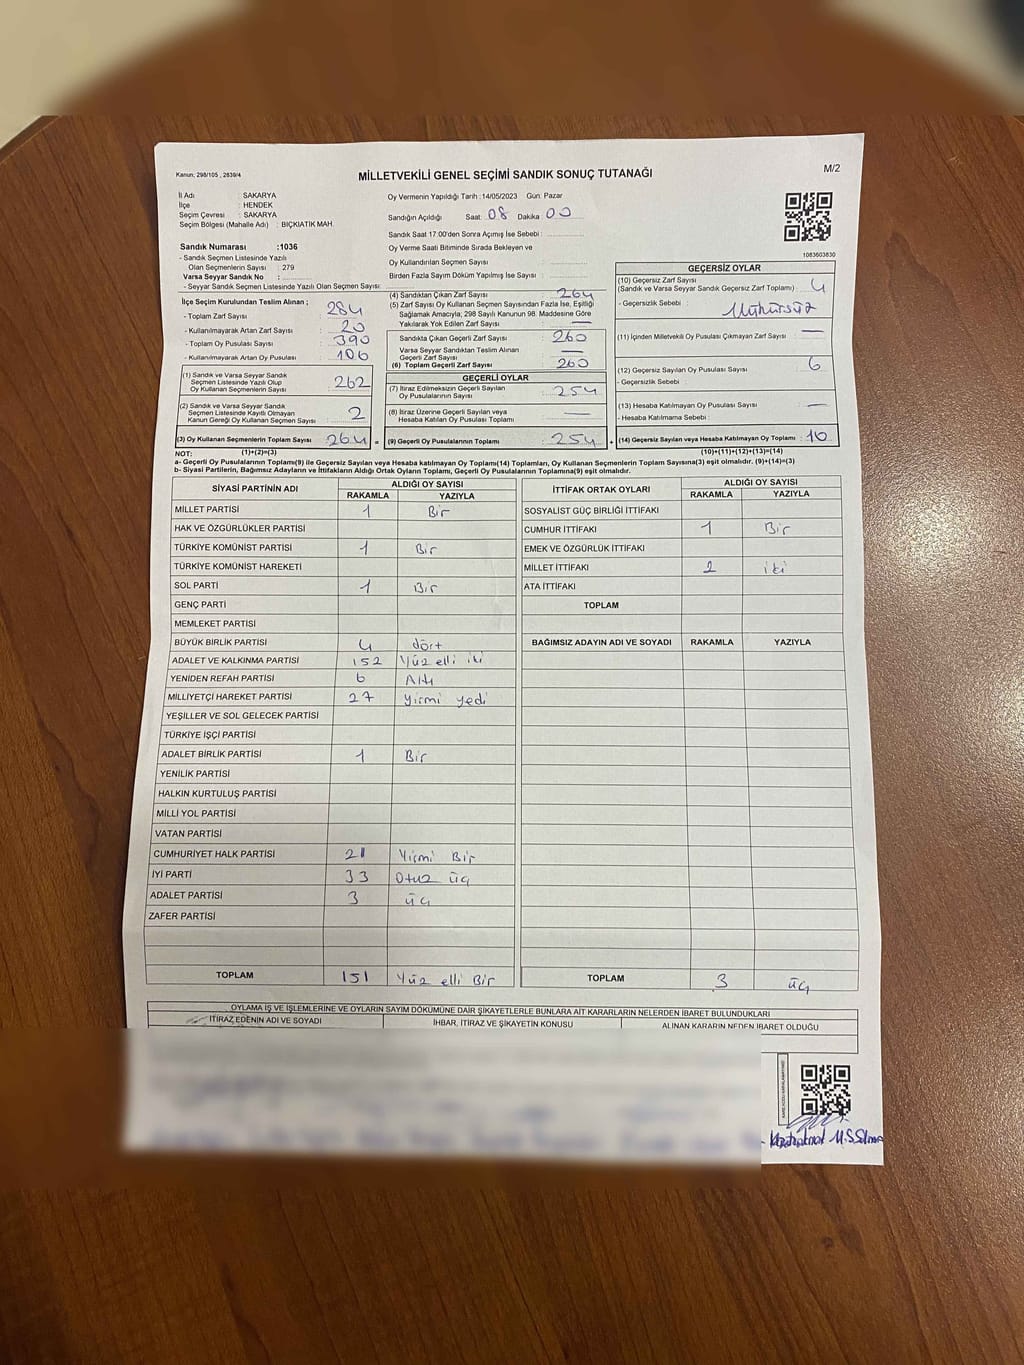 Kanun; 298/105 , 2839/4
MİLLETVEKİLİ GENEL SEÇİMİ SANDIK SONUÇ TUTANAĞI
M/2
İl Adı : SAKARYA
İlçe : HENDEK
Seçim Çevresi : SAKARYA
Seçim Bölgesi (Mahalle Adı) : BIÇKIATİK MAH.
Sandık Numarası :1036
- Sandık Seçmen Listesinde Yazılı
Olan Seçmenlerin Sayısı : 279
Varsa Seyyar Sandık No :
- Seyyar Sandık Seçmen Listesinde Yazılı Olan Seçmen Sayısı:
Oy Vermenin Yapıldığı Tarih :14/05/2023 Gün: Pazar
Sandığın Açıldığı Saat: 08 Dakika : 00
Sandık Saat 17:00'den Sonra Açımış İse Sebebi :
Oy Verme Saati Bitiminde Sırada Bekleyen ve
Oy Kullandırılan Seçmen Sayısı :
Birden Fazla Sayım Döküm Yapılmış İse Sayısı :
1083603830
İlçe Seçim Kurulundan Teslim Alınan ;
- Toplam Zarf Sayısı : 284
- Kullanılmayarak Artan Zarf Sayısı : 20
- Toplam Oy Pusulası Sayısı : 390
- Kullanılmayarak Artan Oy Pusulası : 106
(1) Sandık ve Varsa Seyyar Sandık
Seçmen Listesinde Yazılı Olup
Oy Kullanan Seçmenlerin Sayısı : 262
(2) Sandık ve Varsa Seyyar Sandık
Seçmen Listesinde Kayıtlı Olmayan
Kanun Gereği Oy Kullanan Seçmen Sayısı : 2
(3) Oy Kullanan Seçmenlerin Toplam Sayısı : 264 =
(1)+(2)=(3)
(4) Sandıktan Çıkan Zarf Sayısı : 264
(5) Zarf Sayısı Oy Kullanan Seçmen Sayısından Fazla İse, Eşitliği
Sağlamak Amacıyla; 298 Sayılı Kanunun 98. Maddesine Göre
Yakılarak Yok Edilen Zarf Sayısı : —
Sandıkta Çıkan Geçerli Zarf Sayısı : 260
Varsa Seyyar Sandıktan Teslim Alınan
Geçerli Zarf Sayısı : —
(6) Toplam Geçerli Zarf Sayısı : 260
GEÇERLİ OYLAR
(7) İtiraz Edilmeksizin Geçerli Sayılan
Oy Pusulasının Sayısı : 254
(8) İtiraz Üzerine Geçerli Sayılan veya
Hesaba Katılan Oy Pusulası Toplamı : —
(9) Geçerli Oy Pusulalarının Toplamı : 254 +
GEÇERSİZ OYLAR
(10) Geçersiz Zarf Sayısı
(Sandık ve Varsa Seyyar Sandık Geçersiz Zarf Toplamı) : 4
- Geçersizlik Sebebi : Mühürsüz
(11) İçinden Milletvekili Oy Pusulası Çıkmayan Zarf Sayısı : —
(12) Geçersiz Sayılan Oy Pusulası Sayısı : 6
- Geçersizlik Sebebi
(13) Hesaba Katılmayan Oy Pusulası Sayısı : —
- Hesaba Katılmama Sebebi :
(14) Geçersiz Sayılan veya Hesaba Katılmayan Oy Toplamı : 10
(10)+(11)+(12)+(13)=(14)
NOT:
a- Geçerli Oy Pusulalarının Toplamı(9) ile Geçersiz Sayılan veya Hesaba katılmayan Oy Toplamı(14) Toplamları, Oy Kullanan Seçmenlerin Toplam Sayısına(3) eşit olmalıdır. (9)+(14)=(3)
b- Siyasi Partilerin, Bağımsız Adayların ve İttifakların Aldığı Ortak Oyların Toplamı, Geçerli Oy Pusulalarının Toplamına(9) eşit olmalıdır.
SİYASİ PARTİNİN ADI ALDIĞI OY SAYISI
RAKAMLA YAZIYLA
MİLLET PARTİSİ 1 Bir
HAK VE ÖZGÜRLÜKLER PARTİSİ
TÜRKİYE KOMÜNİST PARTİSİ 1 Bir
TÜRKİYE KOMÜNİST HAREKETİ
SOL PARTİ 1 Bir
GENÇ PARTİ
MEMLEKET PARTİSİ
BÜYÜK BİRLİK PARTİSİ 4 dört
ADALET VE KALKINMA PARTİSİ 152 Yüz elli iki
YENİDEN REFAH PARTİSİ 6 Altı
MİLLİYETÇİ HAREKET PARTİSİ 27 yirmi yedi
YEŞİLLER VE SOL GELECEK PARTİSİ
TÜRKİYE İŞÇİ PARTİSİ
ADALET BİRLİK PARTİSİ 1 Bir
YENİLİK PARTİSİ
HALKIN KURTULUŞ PARTİSİ
MİLLİ YOL PARTİSİ
VATAN PARTİSİ
CUMHURİYET HALK PARTİSİ 21 Yirmi Bir
İYİ PARTİ 33 Otuz üç
ADALET PARTİSİ 3 üç
ZAFER PARTİSİ
TOPLAM 151 Yüz elli Bir
İTTİFAK ORTAK OYLARI ALDIĞI OY SAYISI
RAKAMLA YAZIYLA
SOSYALİST GÜÇ BİRLİĞİ İTTİFAKI
CUMHUR İTTİFAKI 1 Bir
EMEK VE ÖZGÜRLÜK İTTİFAKI
MİLLET İTTİFAKI 2 iki
ATA İTTİFAKI
TOPLAM
BAĞIMSIZ ADAYIN ADI VE SOYADI RAKAMLA YAZIYLA
TOPLAM 3 üç
OYLAMA İŞ VE İŞLEMLERİNE VE OYLARIN SAYIM DÖKÜMÜNE DAİR ŞİKAYETLERLE BUNLARA AİT KARARLARIN NELERDEN İBARET BULUNDUKLARI
İTİRAZ EDENİN ADI VE SOYADI İHBAR, İTİRAZ VE ŞİKAYETİN KONUSU ALINAN KARARIN NEDEN İBARET OLDUĞU